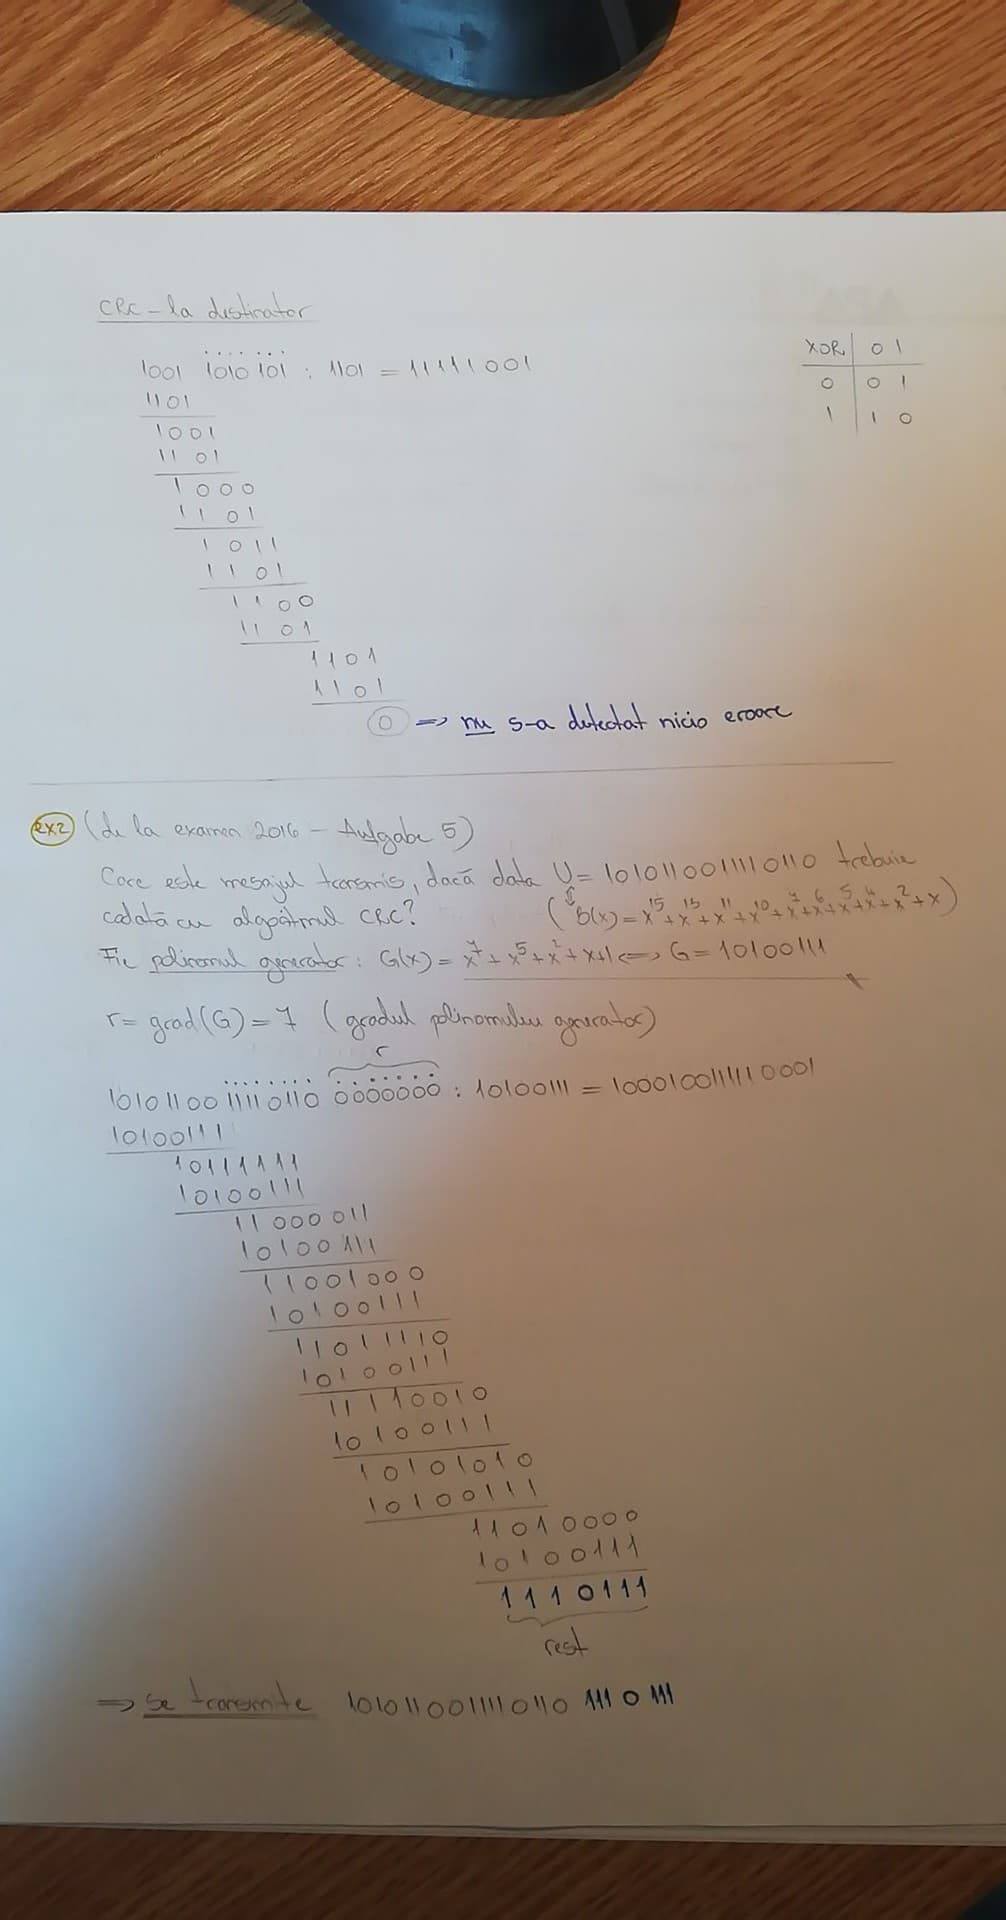 CRC - la destinatar
XOR 0 1
0 0 1
1 1 0
1001 1010 101 : 1101 = 11111001
1101
1001
1101
1000
1101
1011
1101
1100
1101
1101
1101
0 => nu s-a detectat nicio eroare
ex2 (de la examen 2016 - Aufgabe 5)
Care este mesajul transmis, dacă data U = 1010110011110110 trebuie
codată cu algoritmul CRC? (B(x) = x^15 + x^13 + x^11 + x^10 + x^7 + x^6 + x^5 + x^4 + x^2 + x)
Fie polinomul generator: G(x) = x^7 + x^5 + x^2 + x + 1 <=> G = 10100111
r = grad(G) = 7 (gradul polinomului generator)
r
1010110011110110 0000000 : 10100111 = 1000100111110001
10100111
10111111
10100111
11000011
10100111
11001000
10100111
11011110
10100111
11110010
10100111
10101010
10100111
11010000
10100111
1110111
rest
=> se transmite 1010110011110110 1110111